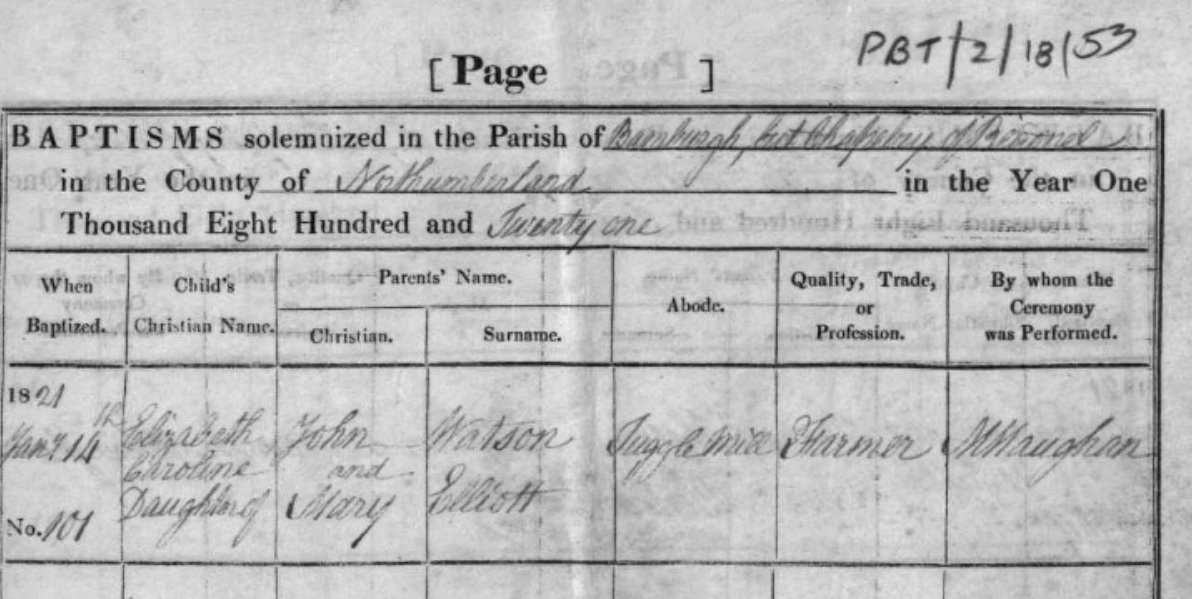 PBT/2/18/53
[Page ]
BAPTISMS solemnized in the Parish of Bamburgh, but Chapelry of
in the County of Northumberland in the Year One
Thousand Eight Hundred and Twenty one
When Baptized.
Child's Christian Name.
Parents' Name.
Christian.
Surname.
Abode.
Quality, Trade, or Profession.
By whom the Ceremony was Performed.
1821
Jany 14th
No. 101
Elizabeth
Caroline
Daughter of
John
and
Mary
Watson
Elliott
Tuggle Mill
Farmer